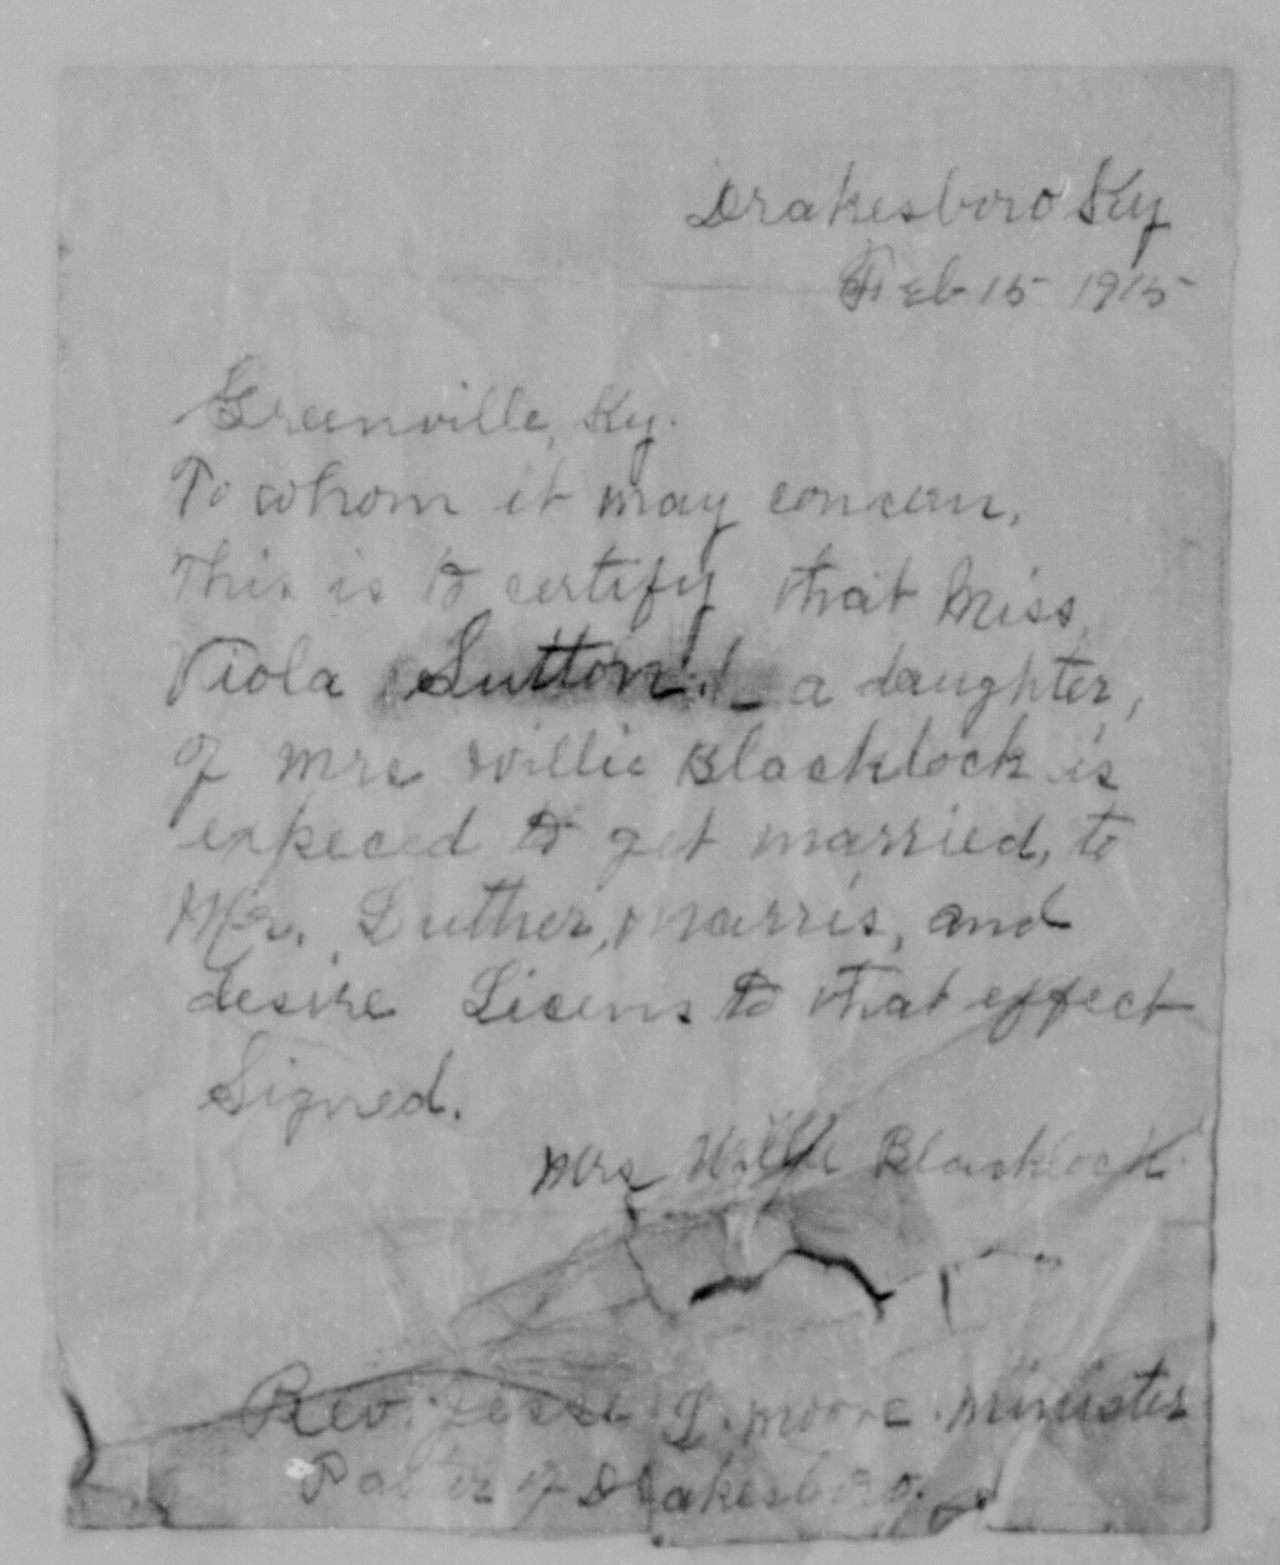 Drakesboro Ky
Feb 15 1915
Greenville, Ky.
To whom it may concern,
This is to certify that Miss,
Viola Sutton. a daughter,
of Mrs Willie Blacklock is
expeced to get married, to
Mr. Luther, Marris, and
desire Licens to that effect
Signed.
Mrs Willie Blacklock.
Rev. Jesse L. Moore. Minister
Paster of Drakesboro.